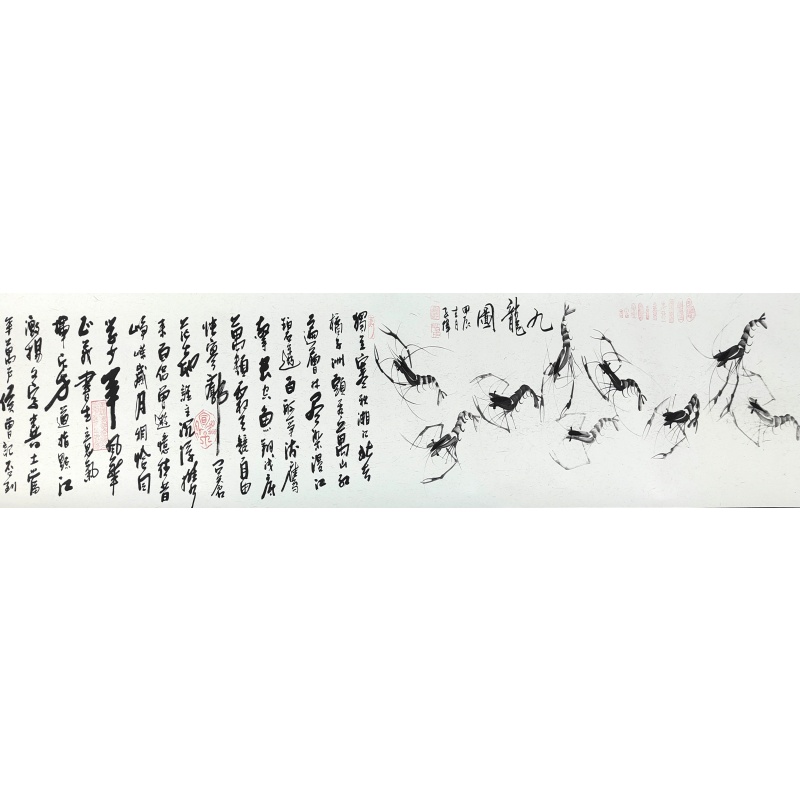 九龍圖
甲辰
獨立寒秋湘江北去
橘子洲頭看萬山紅
遍層林盡染漫江
碧透百舸爭流鷹
擊長空魚翔淺底
萬類霜天競自由
悵寥廓問蒼
茫大地誰主沉浮攜
來百侶曾遊憶往昔
崢嶸歲月稠恰同
學少年風華
正茂書生意氣
揮斥方遒指點江
激揚文字糞土當
年萬戶侯曾記否到